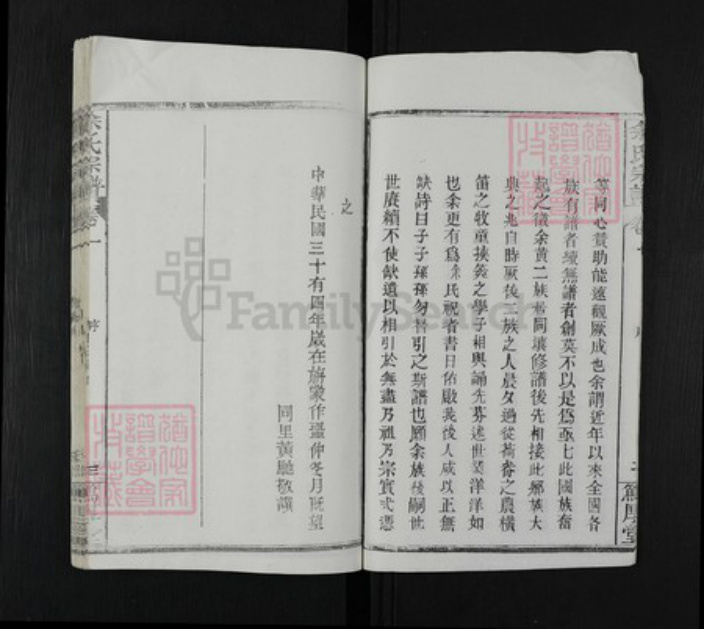 等同心贊助能遂觀厥成也余謂近年以來全國各
族有譜者續無譜者創莫不以是為亟亟此國族奮
起之徵余黃二族相同壤修譜後先相接此鄉族大
典之兆自時厥後二族之人晨夕過從荷畚之農橫
笛之牧童挾筴之學子相與誦先芬述世業洋洋如
也余更有為余氏祝者書曰佑啟我後人咸以正無
缺詩曰子子孫孫勿替引之斯譜也願余族後嗣世
世賡續不使缺遺以相引於無盡乃祖乃宗實式憑
之
中華民國三十有四年歲在旃蒙作噩仲冬月既望
同里黃馳敬譔
余氏宗譜 卷一
序
二 篤厚堂
余氏宗譜 卷一
序
三
FamilySearch